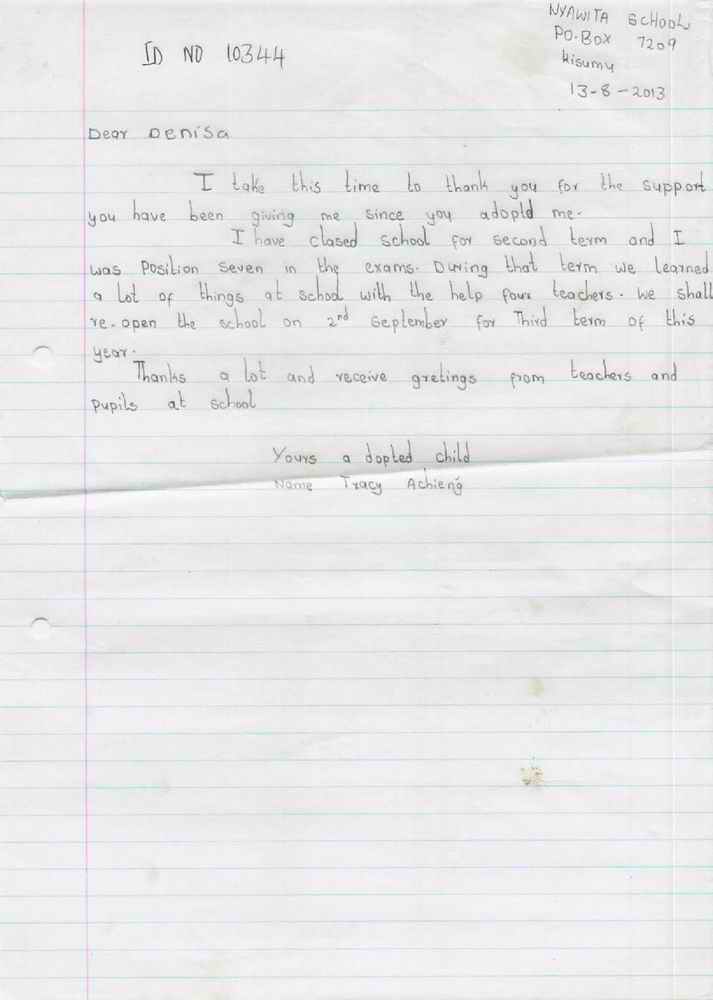 NYAWITA SCHOOL
PO.BOX 7209
ID NO 10344
kisumu
13-8-2013
Dear Denisa
I take this time to thank you for the support
you have been giving me since you adoptd me.
I have closed school for second term and I
was Position seven in the exams. During that term we learned
a lot of things at school with the help four teachers. we shall
re-open the school on 2nd September for Third term of this
year.
Thanks a lot and receive gretings from teachers and
pupils at school
Yours a dopted child
Name Tracy Achieng